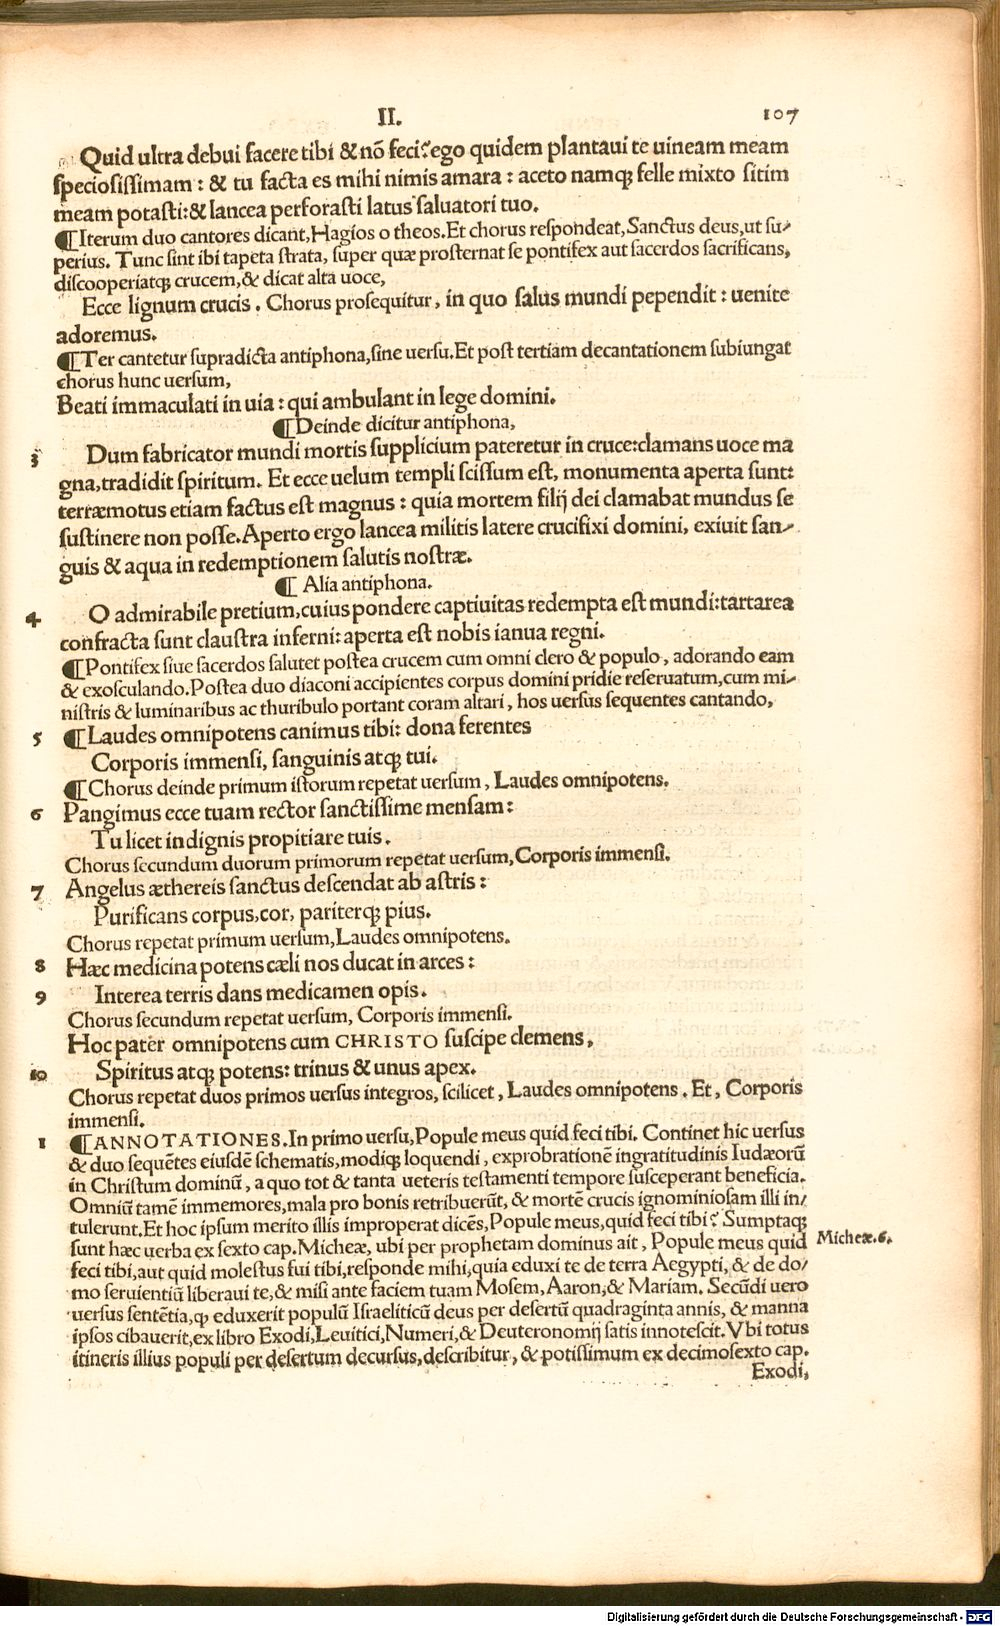 II. 107
Quid ultra debui facere tibi & nō feci? ego quidem plantaui te uineam meam
speciosissimam : & tu facta es mihi nimis amara : aceto namqꝫ felle mixto sitim
meam potasti: & lancea perforasti latus saluatori tuo.
¶ Iterum duo cantores dicant, Hagios o theos. Et chorus respondeat, Sanctus deus, ut su-
perius. Tunc sint ibi tapeta strata, super quæ prosternat se pontifex aut sacerdos sacrificans,
discooperiatqꝫ crucem, & dicat alta uoce,
Ecce lignum crucis . Chorus prosequitur, in quo salus mundi pependit : uenite
adoremus.
¶ Ter cantetur supradicta antiphona, sine uersu. Et post tertiam decantationem subiungat
chorus hunc uersum,
Beati immaculati in uia : qui ambulant in lege domini.
¶ Deinde dicitur antiphona,
3 Dum fabricator mundi mortis supplicium pateretur in cruce: clamans uoce ma
gna, tradidit spiritum. Et ecce uelum templi scissum est, monumenta aperta sunt:
terræmotus etiam factus est magnus : quia mortem filij dei clamabat mundus se
sustinere non posse. Aperto ergo lancea militis latere crucifixi domini, exiuit san-
guis & aqua in redemptionem salutis nostræ.
¶ Alia antiphona.
4 O admirabile pretium, cuius pondere captiuitas redempta est mundi: tartarea
confracta sunt claustra inferni: aperta est nobis ianua regni.
¶ Pontifex siue sacerdos salutet postea crucem cum omni clero & populo, adorando eam
& exosculando. Postea duo diaconi accipientes corpus domini pridie reseruatum, cum mi-
nistris & luminaribus ac thuribulo portant coram altari, hos uersus sequentes cantando,
5 ¶ Laudes omnipotens canimus tibi: dona ferentes
Corporis immensi, sanguinis atqꝫ tui.
¶ Chorus deinde primum istorum repetat uersum, Laudes omnipotens.
6 Pangimus ecce tuam rector sanctissime mensam :
Tu licet indignis propitiare tuis.
Chorus secundum duorum primorum repetat uersum, Corporis immensi.
7 Angelus æthereis sanctus descendat ab astris :
Purificans corpus, cor, pariterqꝫ pius.
Chorus repetat primum uersum, Laudes omnipotens.
8 Hæc medicina potens cæli nos ducat in arces :
9 Interea terris dans medicamen opis.
Chorus secundum repetat uersum, Corporis immensi.
Hoc pater omnipotens cum CHRISTO suscipe clemens,
10 Spiritus atqꝫ potens: trinus & unus apex.
Chorus repetat duos primos uersus integros, scilicet, Laudes omnipotens. Et, Corporis
immensi.
1 ¶ ANNOTATIONES. In primo uersu, Popule meus quid feci tibi. Continet hic uersus
& duo sequētes eiusdē schematis, modiqꝫ loquendi, exprobrationē ingratitudinis Iudæorū
in Christum dominū, a quo tot & tanta ueteris testamenti tempore susceperant beneficia.
Omniū tamē immemores, mala pro bonis retribuerūt, & mortē crucis ignominiosam illi in/
tulerunt. Et hoc ipsum merito illis improperat dicēs, Popule meus, quid feci tibi? Sumptaqꝫ
sunt hæc uerba ex sexto cap. Micheæ, ubi per prophetam dominus ait, Popule meus quid
Micheæ. 6.
feci tibi, aut quid molestus fui tibi, responde mihi, quia eduxi te de terra Aegypti, & de do/
mo seruientiū liberaui te, & misi ante faciem tuam Mosem, Aaron, & Mariam. Secūdi uero
uersus sentētia, ꝙ eduxerit populū Israeliticū deus per desertū quadraginta annis, & manna
ipsos cibauerit, ex libro Exodi, Leuitici, Numeri, & Deuteronomij satis innotescit. Vbi totus
itineris illius populi per desertum decursus, describitur, & potissimum ex decimosexto cap.
Exodi,
Digitalisierung gefördert durch die Deutsche Forschungsgemeinschaft - DFG